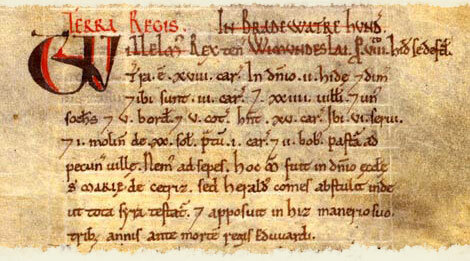 TERRA REGIS. IN BRADEWATRE HUND'
Willelm' Rex ten' WIMUNDESLAI. p̱ VIII. hid' se def'd'.
Tr̄a ē. XVIII. car̄. In dn̄io. II. hidę 7 dim'.
7 ibi sunt. III. car̄. 7 XXIIII. uill̄i. 7 un'
soch̄s 7 V. bord̄. 7 V. cot̄. hn̄t. XV. car̄. Ibi. VI. serui.
7 I. molin̄ de. XX. sol̄. p̄tū. I. car̄. 7 II. bob;. pasta ad
pecun̄ uillę. Nem' ad sepes. Hoc M̄ fuit in dn̄io æccłæ
S' MARIE de cetriz. sed herald' comes abstulit inde
ut tota syra testat'. 7 apposuit in hiz manerio suo
trib; annis ante mortē regis Edwardi.